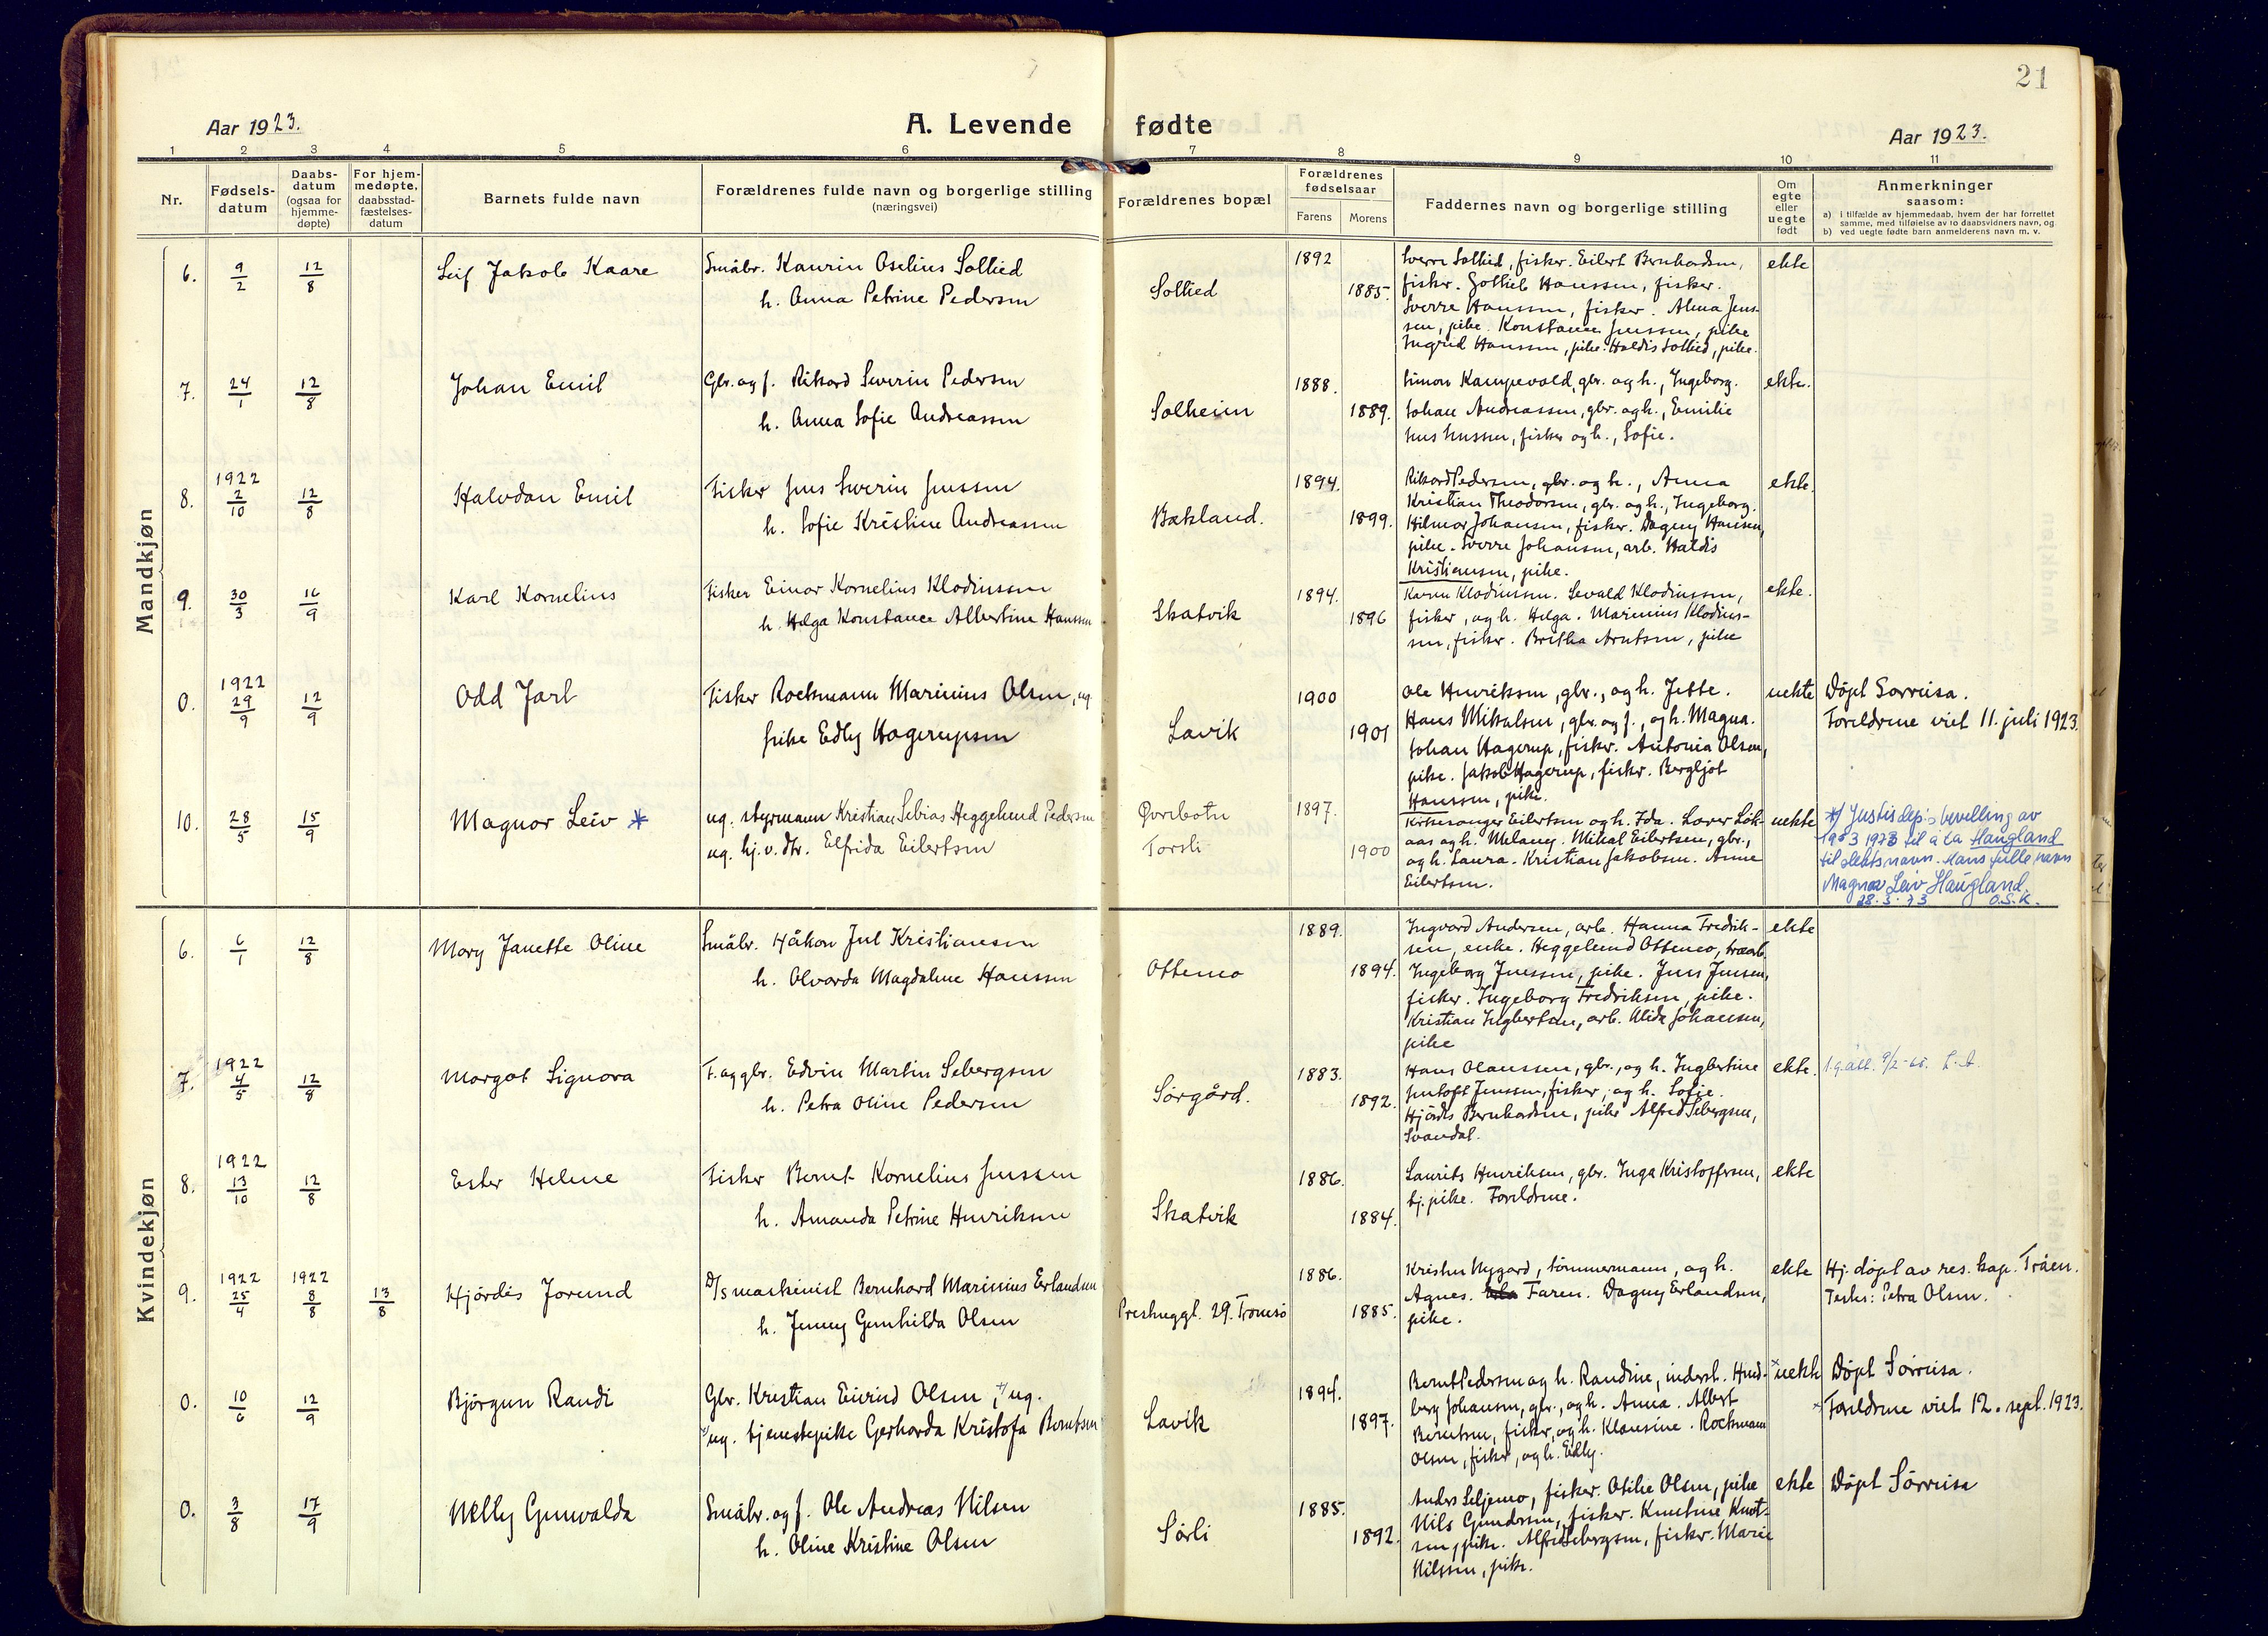 21
Aar 1923.
A. Levende fødte
Aar 1923.
1 2 3 4 5 6 7 8 9 10 11
Nr.
Fødsels-
datum
Daabs-
datum
(ogsaa for
hjemme-
døpte)
For hjem-
medøpte,
daabsstad-
fæstelses-
datum
Barnets fulde navn
Forældrenes fulde navn og borgerlige stilling
(næringsvei)
Forældrenes bopæl
Forældrenes
fødselsaar
Farens
Morens
Faddernes navn og borgerlige stilling
Om
egte
eller
uegte
født
Anmerkninger
saasom:
a) i tilfælde av hjemmedaab, hvem der har forrettet
samme, med tilføielse av to daabsvidners navn, og
b) ved uegte fødte barn anmelderens navn m. v.
Mandkjøn
6. 9/2 12/8 Leif Jakob Kaare
Småbr. Kaurin Oselius Sollied
h. Anna Petrine Pedersen
Sollied
1892
1885.
Sverre Sollied, fisker. Eilert Bernhardsen,
fisker. Gottlieb Hanssen, fisker.
Sverre Hanssen, fisker. Alma Jens-
sen, pike. Konstance Jenssen, pike
Ingrid Hanssen, pike. Haldis Sollied, pike.
ekte
7. 24/1 12/8 Johan Emil
Gbr. og f. Rikard Severin Pedersen
h. Anna Sofie Andreassen
Solheim
1888.
1889.
Simon Kampevold, gbr. og h., Ingeborg.
Johan Andreassen, gbr. og h., Emilie
Jens Jenssen, fisker og h., Sofie.
ekte.
8. 1922 2/10 12/8 Halvdan Emil
Fisker Jens Severin Jenssen
h. Sofie Kristine Andreassen
Bakland.
1894.
1899.
Rikard Pedersen, gbr. og h., Anna
Kristian Theodorsen, gbr. og h., Ingeborg.
Hilmar Johansen, fisker. Dagny Hansen,
pike. Sverre Johansen, arb. Haldis
Kristiansen, pike.
ekte.
9. 30/3 16/9 Karl Kornelius
Fisker Einar Kornelius Klodiussen
h. Helga Konstance Albertine Hanssen
Skatvik
1894.
1896
Karen Klodiussen. Sevald Klodiussen,
fisker, og h. Helga. Marinius Klodius-
sen, fisker. Britha Arntsen, pike
ekte.
0. 1922 29/9 12/9 Odd Jarl
Fisker Rockmann Marinius Olsen, ug.
pike Edly Hagerupsen
Lavik
1900
1901
Ole Henriksen, gbr., og h. Jette.
Hans Mikalsen, gbr. og f., og h. Magna.
Johan Hagerup, fisker. Antonia Olsen,
pike. Jakob Hagerup, fisker. Bergljot
Hanssen, pike.
uekte
Døpt Sørreisa.
Foreldrene viet 11. juli 1923.
10. 28/5 15/9 Magnor Leiv *
ug. styrmann Kristian Sebias Heggelund Pedersen
ug. hj.v. dtr. Elfrida Eilertsen
Forsli
1897.
1900
Eilertsen og h. Ida.
aas og h. Melany. Mikal Eilertsen, gbr.,
og h. Laura. Kristian Jakobsen. Anne
Eilertsen.
uekte
*) Justisdep's bevilling av
1973 til å ta Haugland
til slektsnavn. Hans fulle navn
Magnar Leiv Haugland.
28.3.73 O.S.K.
Kvindekjøn
6. 6/1 12/8 Mary Janette Oline
Småbr. Håkon Jul Kristiansen
h. Olvarda Magdalene Hanssen
Ottemo
1889.
1894.
Ingvard Andersen, arb. Hanna Fredrik-
sen, enke. Heggelund Ottemo, træarb.
Ingeborg Jenssen, pike. Jens Jensen,
fisker. Ingeborg Fredriksen, pike.
Kristian Ingbertsen, arb. Alida Johansen,
pike
ekte
7. 1922 4/5 12/8 Margot Signora
F. og gbr. Edvin Martin Sebergsen
h. Petra Oline Pedersen
Sørgård.
1883.
1892.
Hans Olaussen, gbr., og h. Ingbertine
Jentoft Jenssen, fisker, og h. Sofie.
Hjördis Bernhardsen, pike Alfred Sebergsen,
Svandal.
ekte.
9/2-65.
8. 1922 13/10 12/8 Ester Helene
Fisker Bernt Kornelius Jenssen
h. Amanda Petrine Henriksen
Skatvik
1886.
1884.
Laurits Henriksen, gbr. Inga Kristoffersen,
tj. pike. Foreldrene.
ekte
9. 1922 25/4 1922 8/8 13/8 Hjördis Jorund
D/s maskinist Bernhard Marinius Erlandsen
h. Jenny Gunhilda Olsen
29. Tromsø
1886.
1885.
Kristen Nygård, tømmermann, og h.
Agnes. Faren. Dagny Erlandsen,
pike.
ekte
Hj. døpt av res. kap. Tråen.
Testes: Petra Olsen.
0. 10/6 12/9 Björgun Randi
Gbr. Kristian Eivind Olsen, *) ug.
*) ug. tjenestepike Gerharda Kristofa Berntsen
Lavik
1894.
1897.
Bernt Pedersen og h. Randine, inderst. Hend-
berg Johansen, gbr., og h. Anna. Albert
Berntsen, fisker, og h. Klausine. Rockmann
Olsen, fisker, og h. Edly.
* uekte
Døpt Sørreisa.
* Foreldrene viet 12. sept. 1923.
0. 3/8 17/9 Nelly Gunvalda
Småbr. og f. Ole Andreas Nilsen
h. Oline Kristine Olsen
Sørli
1885.
1892.
Anders Seljemo, fisker. Otilie Olsen, pike
Nils Gundersen, fisker. Knutine Knut-
sen, pike. Alfred Sebergsen, fisker. Marie
Nilssen, pike.
ekte
Døpt Sørreisa